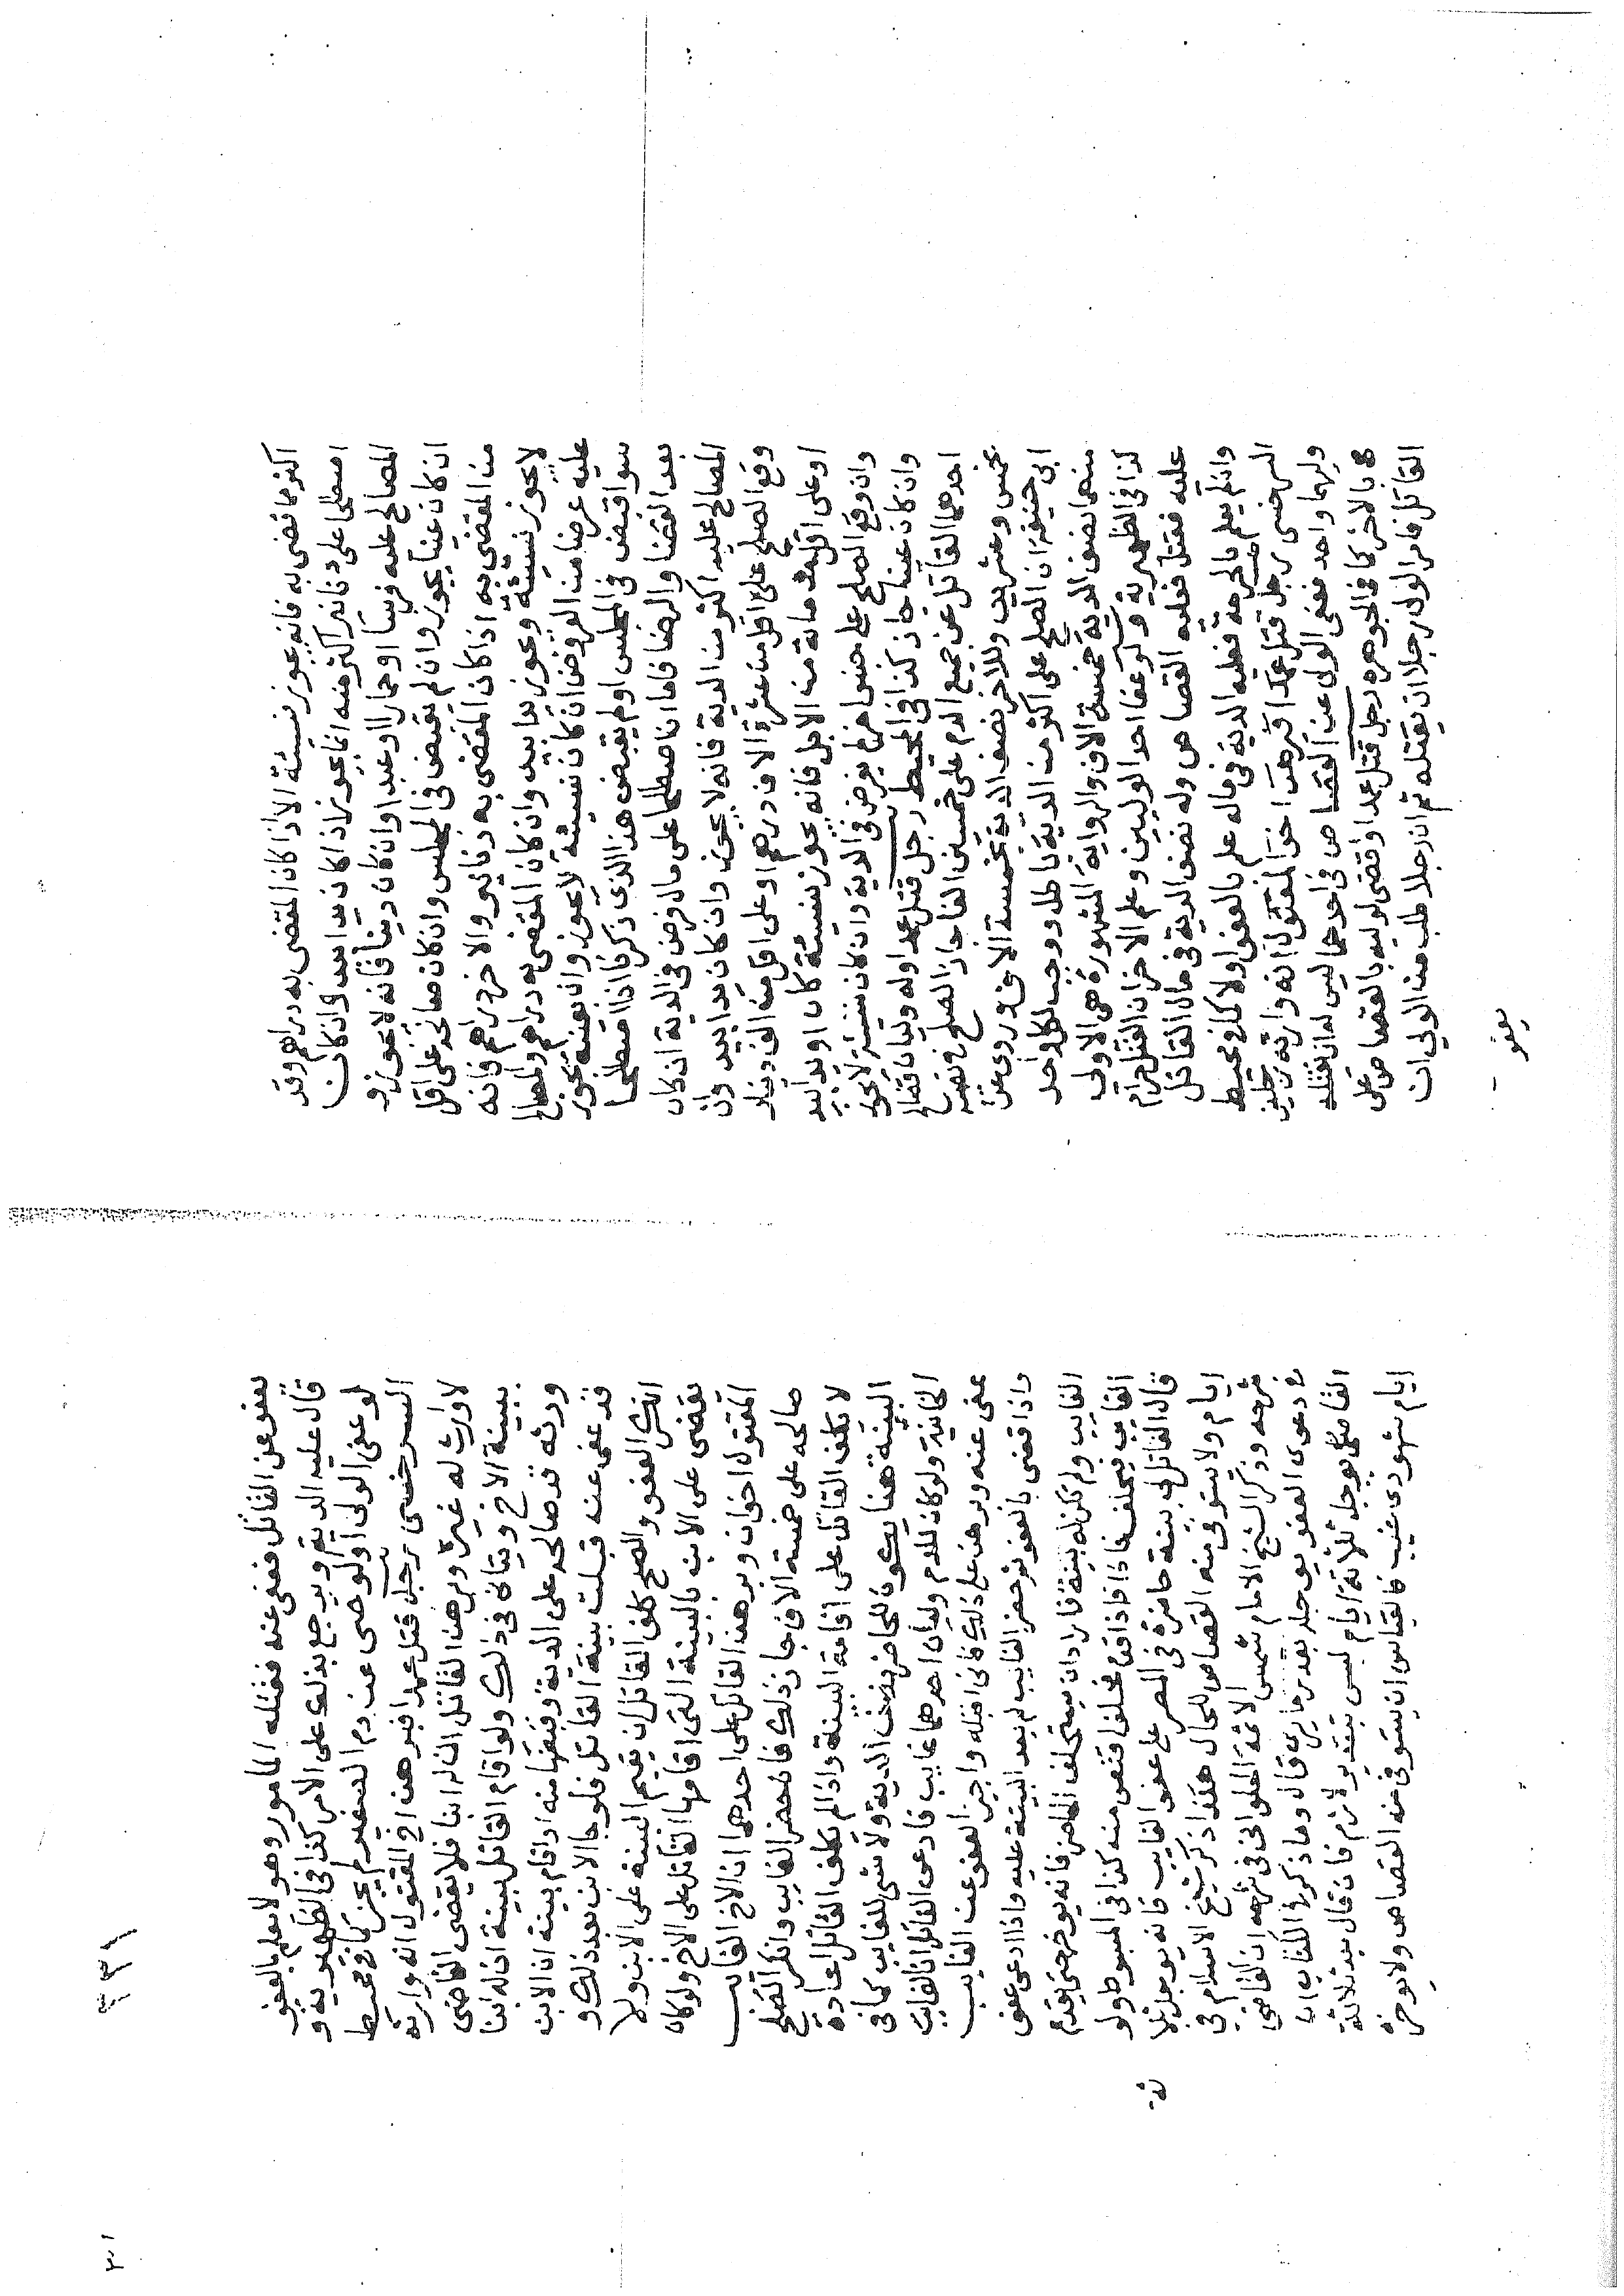 اكثر مما قضى به فانه يجوز نسيئة الا اذا كان المقضى به دراهم وقد
اصطلحا على دنانير اكثر منه انما يجوز اذا كان يدا بيد وان كان
المصالح عليه فرسا او حمارا او عبدا وان كان دينا فانه لا يجوز و
ان كان عينا يجوز وان لم يقبض في المجلس وان كان صالحه على اقل
من المقضى به اذا كان المقضى به دنانير والاخر دراهم فانه
لا يجوز نسيئة ويجوز يدا بيد وان كان المقضى به دراهم والمصالح
عليه عرضا من العروض ان كان نسيئة لا يجوز وان بعينه يجوز
سوا قبض في المجلس او لم يقبض هذا الذي ذكرنا اذا اصطلحا
بعد القضا والرضا فاما اذا اصطلحا على مال فرض في الدية ان كان
المصالح عليه اكثر من الدية فانه لا يجوز وان كان يدا بيد وان
وقع الصلح على اقل من عشرة الاف درهم او على اقل من الف دينار
او على اقل من مائة من الابل فانه يجوز نسيئة كان او يدا بيد
وان وقع الصلح على جنس اخر لم يفرض في الدية وان كان نسيئة لا يجوز
وان كان عينا جاز كذا في المحيط رجل قتل عمدا وله وليان فصالح
احدهما القاتل عن جميع الدم على خمسين الفا جاز الصلح في نصيبه
بخمس وعشرين وللاخر نصف الدية خمسة الاف وروى عن
ابى حنيفة ان الصلح على اكثر من الدية باطل ووجب لكل واحد
منهما نصف الدية خمسة الاف والرواية المشهورة هي الاولى
كذا في الظهيرية ولو عفا احد الوليين وعلم الاخر ان القتل حرام
عليه فقتل فعليه القصاص وله نصف الدية في مال القاتل
وان لم يعلم بالحرمة فعليه الدية في ماله علم بالعفو اولا كذا في محيط
السرخسي رجل قتل عمدا فبرهن اخو المقتول انه وارثه
وليهما واحد فعفى الولى عن القصاص في احدهما ليس له ان يقتله
بالاخر كما في الجوهره رجل قتل عمدا وقضى لوليه بالقصاص على
القاتل فامر الولى رجلا ان يقتله ثم ان رجلا طلب من الولي ان
يعفو
يعفو عن القاتل فعفى عنه فقتله المامور وهو لا يعلم بالعفو
قال عليه الدية ويرجع بذلك على الامر كذا في الظهيرية و
لو عفى الولى او الوصى عن دم الصغير لم يجز كذا في محيط
السرخسى رجل قتل عمدا فبرهن اخ المقتول انه وارثه
لا وارث له غيره وبرهن القاتل ان له ابنا فلا يقضى القاضى
ببينة الاخ ويتانى في ذلك ولو اقام القاتل بينة ان له ابنا
وورثه قد صالحه على الدية وقبضها منه او اقام بينة ان الابن
قد عفى عنه قبلت بينة القاتل فلو جا الابن بعد ذلك و
انكر العفو والصلح كلف القاتل ان يقيم البينة على الابن ولا
يقضى على الابن بالبينة التى اقامها القاتل على الاخ ولو كان
المقتول اخوان وبرهن القاتل على احدهما ان الاخ الغايب
صالحه على خمسة الاف جاز ذلك فان حضر الغايب وانكر الصلح
لا يكلف القاتل على اقامة البينة واذا لم يكلف القاتل اعادة
البينة هنا يكون للحاضر نصف الدية ولا شي للغايب كما في
الخانية ولو كان للدم وليان احدهما غايب فادعى القاتل ان الغايب
عفى عنه وبرهن على ذلك فانى اقبله واجيز العفو عن الغايب
واذا قضى بالعفو ثم حضر الغايب لم يعد البينة عليه واذا ادعى عفو
الغايب ولم تكن له بينة فاراد ان يستحلف الحاضر فانه يوخر حتى يقدم
الغايب فيحلف فاذا قدم فحلف اقتص منه كذا في المبسوط ولو
قال القاتل لي بينة حاضرة في المصر على عفو الغايب فانه يوجل ثلا
ثة
ايام ولا يستوفى منه القصاص للحال هكذا ذكر شيخ الاسلام في
شرحه وذكر الشيخ الامام شمس الائمة الحلوانى في شرحه ان القاضي
في دعوى العفو يوجله بقدر ما يرى قال وما ذكر في الكتاب ان
القاضى يوجل ثلاثة ايام ليس بتقدير لازم فان قال بعد ثلاثة
ايام شهودى غيب فالقياس ان يستوفى منه القصاص ولا يوخره